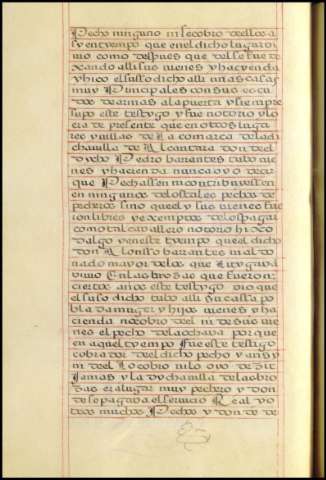 Pecho ninguno ni se cobro dellos a
su tiempo que en el dicho lugar vi
uio como despues que del se fue de
xando alli sus uienes y hazyenda
y hico el suso dicho alli unas casas
muy Principales con su escu
dos de armas a la puerta y siempre
supo este testigo y fue notorio y lo
era de presente que en otros luga
res y uillas de La comarca de la di
cha uilla de Alcantara don de el
dicho Pedro barrantes tubo uie
nes y hacienda nunca oyo decir
que Pechassen ni contribuyessen
en ninguno de los tales pechos de
pecheros sino que el y sus uienes fue
ron libres y exemptos de los pagar
como tal cauallero notorio hixo
dalgo y en este tiempo que el dicho
don Alonsso barrantes maldo
nado mayor de los que Litygua
uiuio En las brosas que fueron
ciertos años este testigo vio que
el suso dicho tubo alli su cassa po
blada muger y hijos uienes y ha
cienda no cobro del ni de sus uie
nes el pecho de la ochaua por que
en aquel tyempo fue este testigo
cobrador de el dicho pecho y ansy
ni de el Lo cobro ni lo oyo decir
Jamas y la dycha uilla de las bro
zas era lugar muy pechero y don
de se pagaba el seruicio Real y o
tros muchos Pechos y don de de